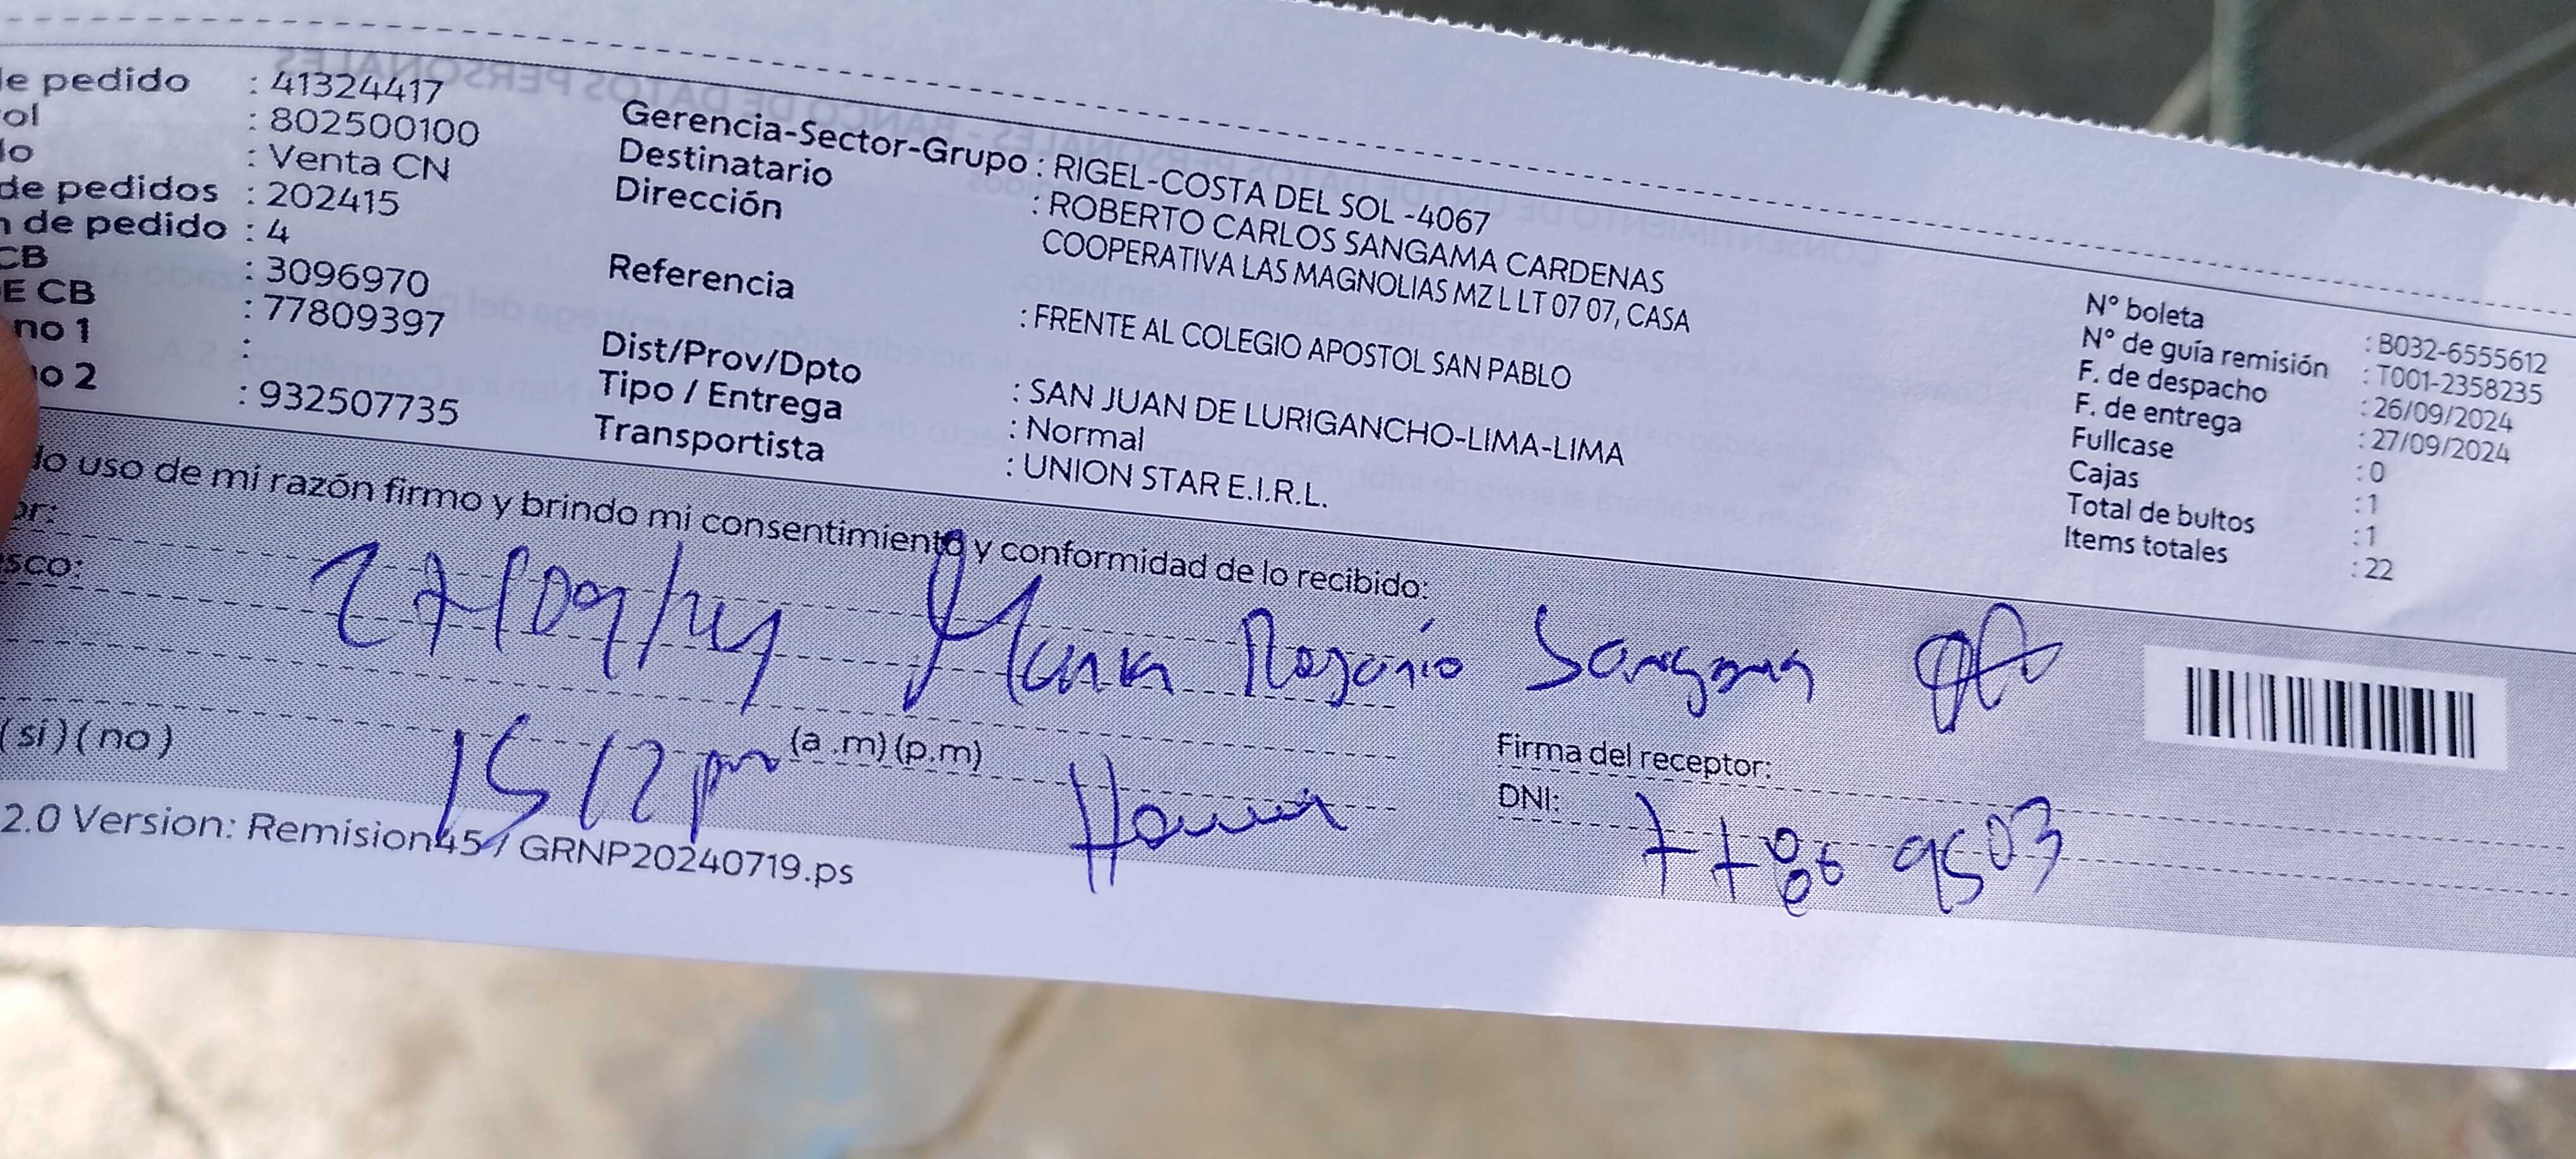 de pedido : 41324417
ol : 802500100
do : Venta CN
de pedidos : 202415
n de pedido : 4
CB : 3096970
E CB : 77809397
no 1 :
no 2 : 932507735
Gerencia-Sector-Grupo : RIGEL-COSTA DEL SOL -4067
Destinatario : ROBERTO CARLOS SANGAMA CARDENAS
Dirección COOPERATIVA LAS MAGNOLIAS MZ L LT 07 07, CASA
Referencia : FRENTE AL COLEGIO APOSTOL SAN PABLO
Dist/Prov/Dpto : SAN JUAN DE LURIGANCHO-LIMA-LIMA
Tipo / Entrega : Normal
Transportista : UNION STAR E.I.R.L.
N° boleta : B032-6555612
N° de guía remisión : T001-2358235
F. de despacho : 26/09/2024
F. de entrega : 27/09/2024
Fullcase : 0
Cajas : 1
Total de bultos : 1
Items totales : 22
do uso de mi razón firmo y brindo mi consentimiento y conformidad de lo recibido:
or:
sco:
27/09/24 Maria Rosario Sangama
(si) (no) 15 12 pm (a .m) (p.m)
Firma del receptor:
DNI: 7786 9503
2.0 Version: Remision45 / GRNP20240719.ps